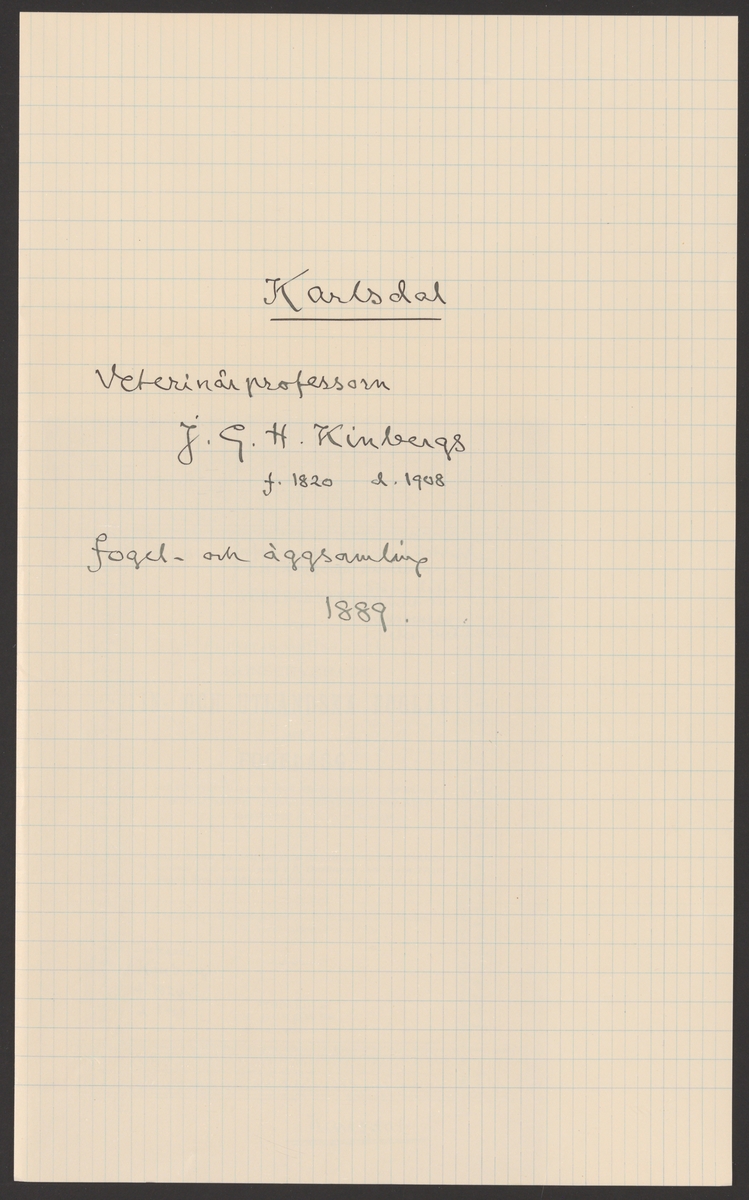 Karlsdal
Veterinärprofessorn
J. G. H. Kinbergs
f. 1820 d. 1908
fogel- och äggsamling
1889.